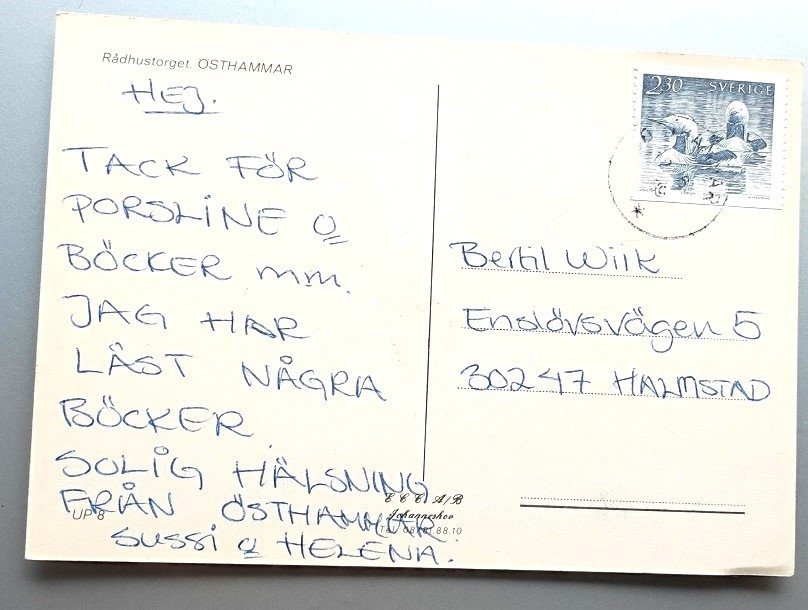 Rådhustorget. ÖSTHAMMAR
HEJ.
TACK FÖR
PORSLINE o
BÖCKER mm.
JAG HAR
LÄST NÅGRA
BÖCKER.
SOLIG HÄLSNING
FRÅN ÖSTHAMMAR.
SUSSI o HELENA.
UP 8
E C C A/B
Johanneshov
88.10
230 SVERIGE
Bertil Wilk
Enslövsvägen 5
30247 HALMSTAD